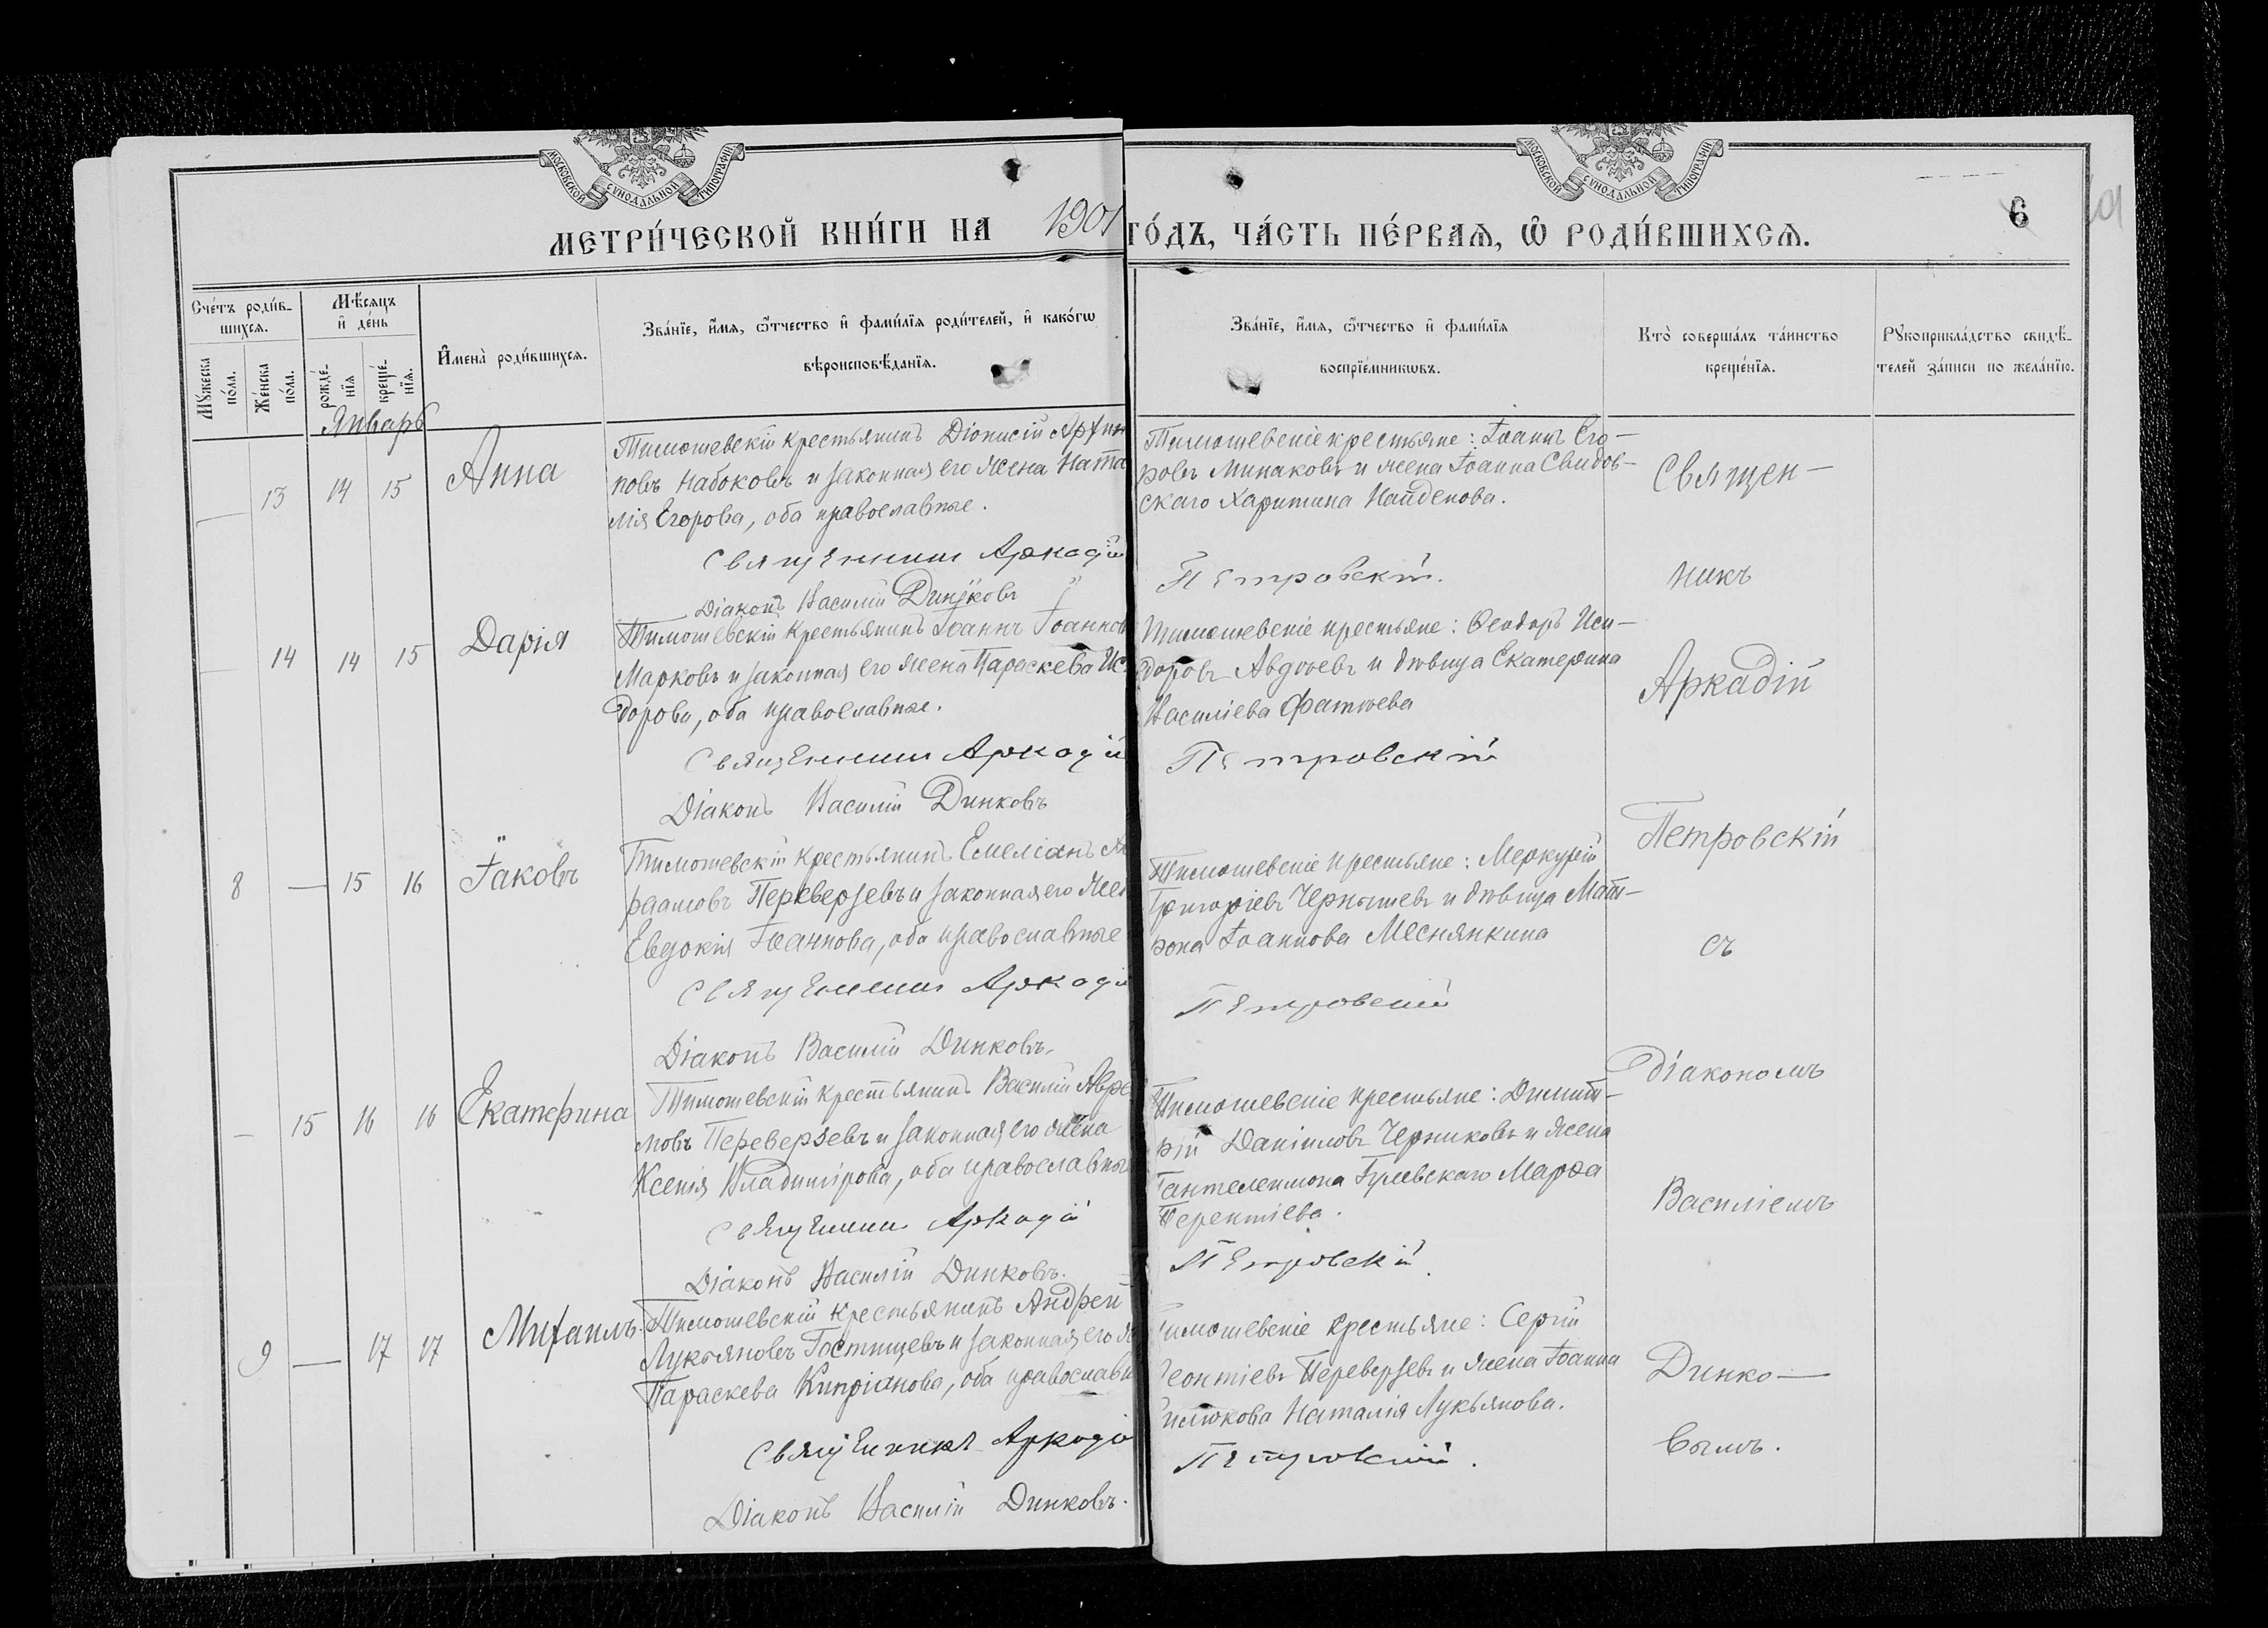 МОСКОВСКОЙ СУНОДАЛЬНОЙ ТИПОГРАФІИ
МОСКОВСКОЙ СУНОДАЛЬНОЙ ТИПОГРАФІИ
6
МЕТРИ́ЧЕСКОЙ КНИ́ГИ НА 1901 ГО́ДЪ, ЧА́СТЬ ПЕ́РВАѦ, Ѡ҆ РОДИ́ВШИХСѦ.
Сче́тъ роди́в-
шихсѧ.
Мꙋ́жеска
по́ла.
Же́нска
по́ла.
Мѣ́сѧцъ
и҆ де́нь
рожде́-
нїѧ
креще́-
нїѧ.
И҆мена̀ роди́вшихсѧ.
Зва́нїе, и҆́мѧ, ѻ҆́тчество и҆ фами́лїѧ роди́телей, и҆ како́гѡ
вѣроисповѣ́данїѧ.
Зва́нїе, и҆́мѧ, ѻ҆́тчество и҆ фами́лїѧ
воспрїе́мникѡвъ.
Кто̀ соверша́лъ та́инство
креще́нїѧ.
Рꙋкоприкла́дство свидѣ́-
телей за́писи по жела́нїю.
Январь
— 13 14 15
Анна
Тимошевскій крестьянинъ Діонисій
повъ Набоковъ и законная его жена Ната
лія Егорова, оба православные.
Священникъ Аркадій
Діаконъ Василій Динковъ
Тимошевскіе крестьяне: Іоаннъ Его-
ровъ Минаковъ и жена Іоанна Свидов-
скаго Харитина Найденова.
Петровскій.
— 14 14 15
Дарія
Тимошевскій крестьянинъ Іоаннъ Іоаннов
Марковъ и законная его жена Параскева Ис
дорова, оба православные.
Священникъ Аркадій
Діаконъ Василій Динковъ
Тимошевскіе крестьяне: Ѳеодоръ Иси-
доровъ Авдѣевъ и дѣвица Екатерина
Василіева Фатѣева
Петровскій
8 — 15 16
Іаковъ
Тимошевскій крестьянинъ Емеліанъ
рамовъ Переверзевъ и законная его жен
Евдокія Іоаннова, оба православные
Священникъ Аркадій
Діаконъ Василій Динковъ.
Тимошевскіе крестьяне: Меркурій
Григоріевъ Чернышевъ и дѣвица Мат-
рона Іоаннова Меснянкина
Петровскій
— 15 16 16
Екатерина
Тимошевскій крестьянинъ Василій Авра
мовъ Переверзевъ и законная его жена
Ксенія Владимірова, оба православные
Священникъ Аркадій
Діаконъ Василій Динковъ.
Тимошевскіе крестьяне: Димит-
рій Даніиловъ Черниковъ и жена
Пантелеимона Гулевскаго Марѳа
Терентіева.
Петровскій.
9 — 17 17
Михаилъ.
Тимошевскій крестьянинъ Андрей
Лукьяновъ Гостищевъ и законная его
Параскева Кипріанова, оба православн
Священникъ Аркадій
Діаконъ Василій Динковъ.
имошевскіе крестьяне: Сергій
еонтіевъ Переверзевъ и жена Іоанна
Наталія Лукьянова.
Петровскій.
Священ-
никъ
Аркадій
Петровскій
съ
діакономъ
Василіемъ
Динко-
вымъ.